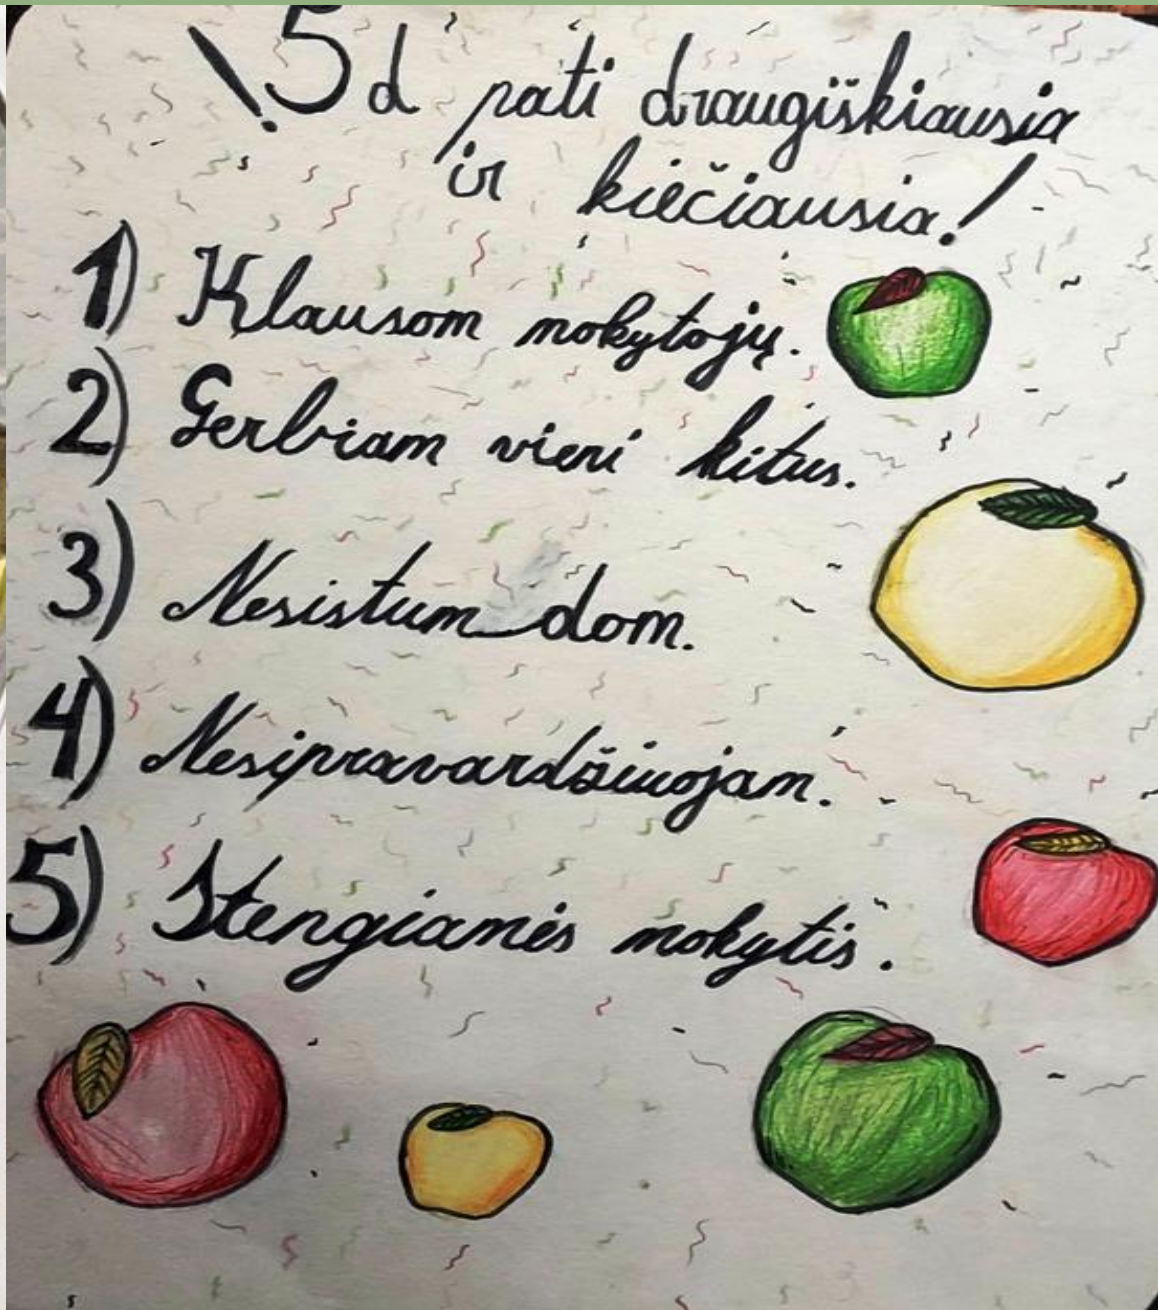 \5d pati draugiškiausia
ir kiečiausia!
1) Klausom mokytojų.
2) Gerbiam vieni kitus.
3) Nesistumdom.
4) Nesipravardžiuojam.
5) Stengiamės mokytis.